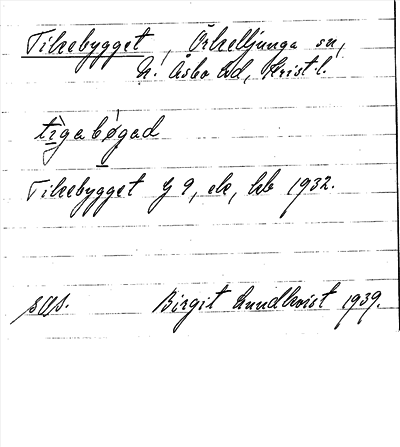 Tikebygget, Örkelljunga sn,
N. Åsbo hd, Krist l.
tìgabǿgad
Tikebygget G 9, ek, hb 1932.
Birgit Lundkvist 1939.